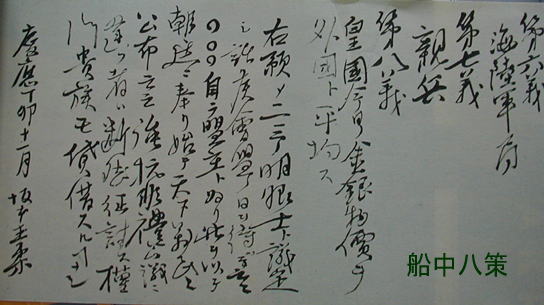 第六義
海陸軍局
第七義
親兵
第八義
皇國今日ノ金銀物價ヲ
外国ト平均ス
右預メ二三ノ明眼士ト議定
シ諸侯會盟ノ日ヲ待ツテ云云
○○○自ラ盟主ト為リ此ヲ以テ
朝廷ニ奉リ始テ天下萬民ニ
公布云云強抗非禮公議ニ
違フ者ハ断然征討ス權
門貴族モ貸借スルコトナシ
慶應丁卯十一月 坂本直柔
船中八策